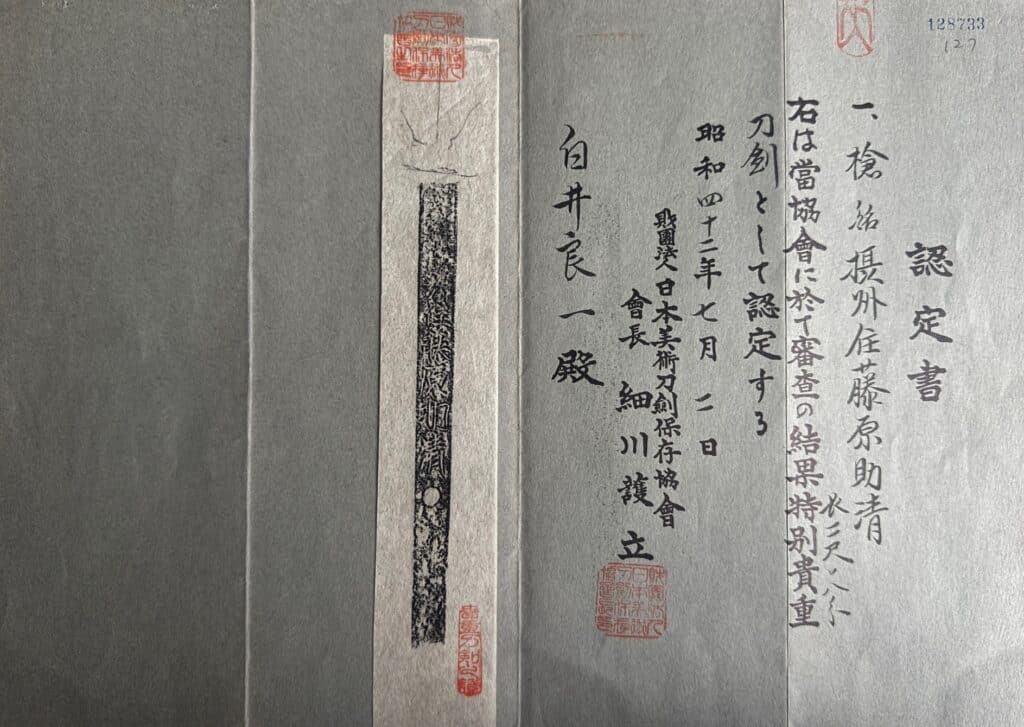 128733
127
認定書
一、槍 銘 摂州住藤原助清
長二尺八分
右は當協會に於て審査の結果特別貴重
刀剣として認定する
昭和四十二年七月二日
財團法人日本美術刀劍保存協會
會長 細川護立
白井良一殿